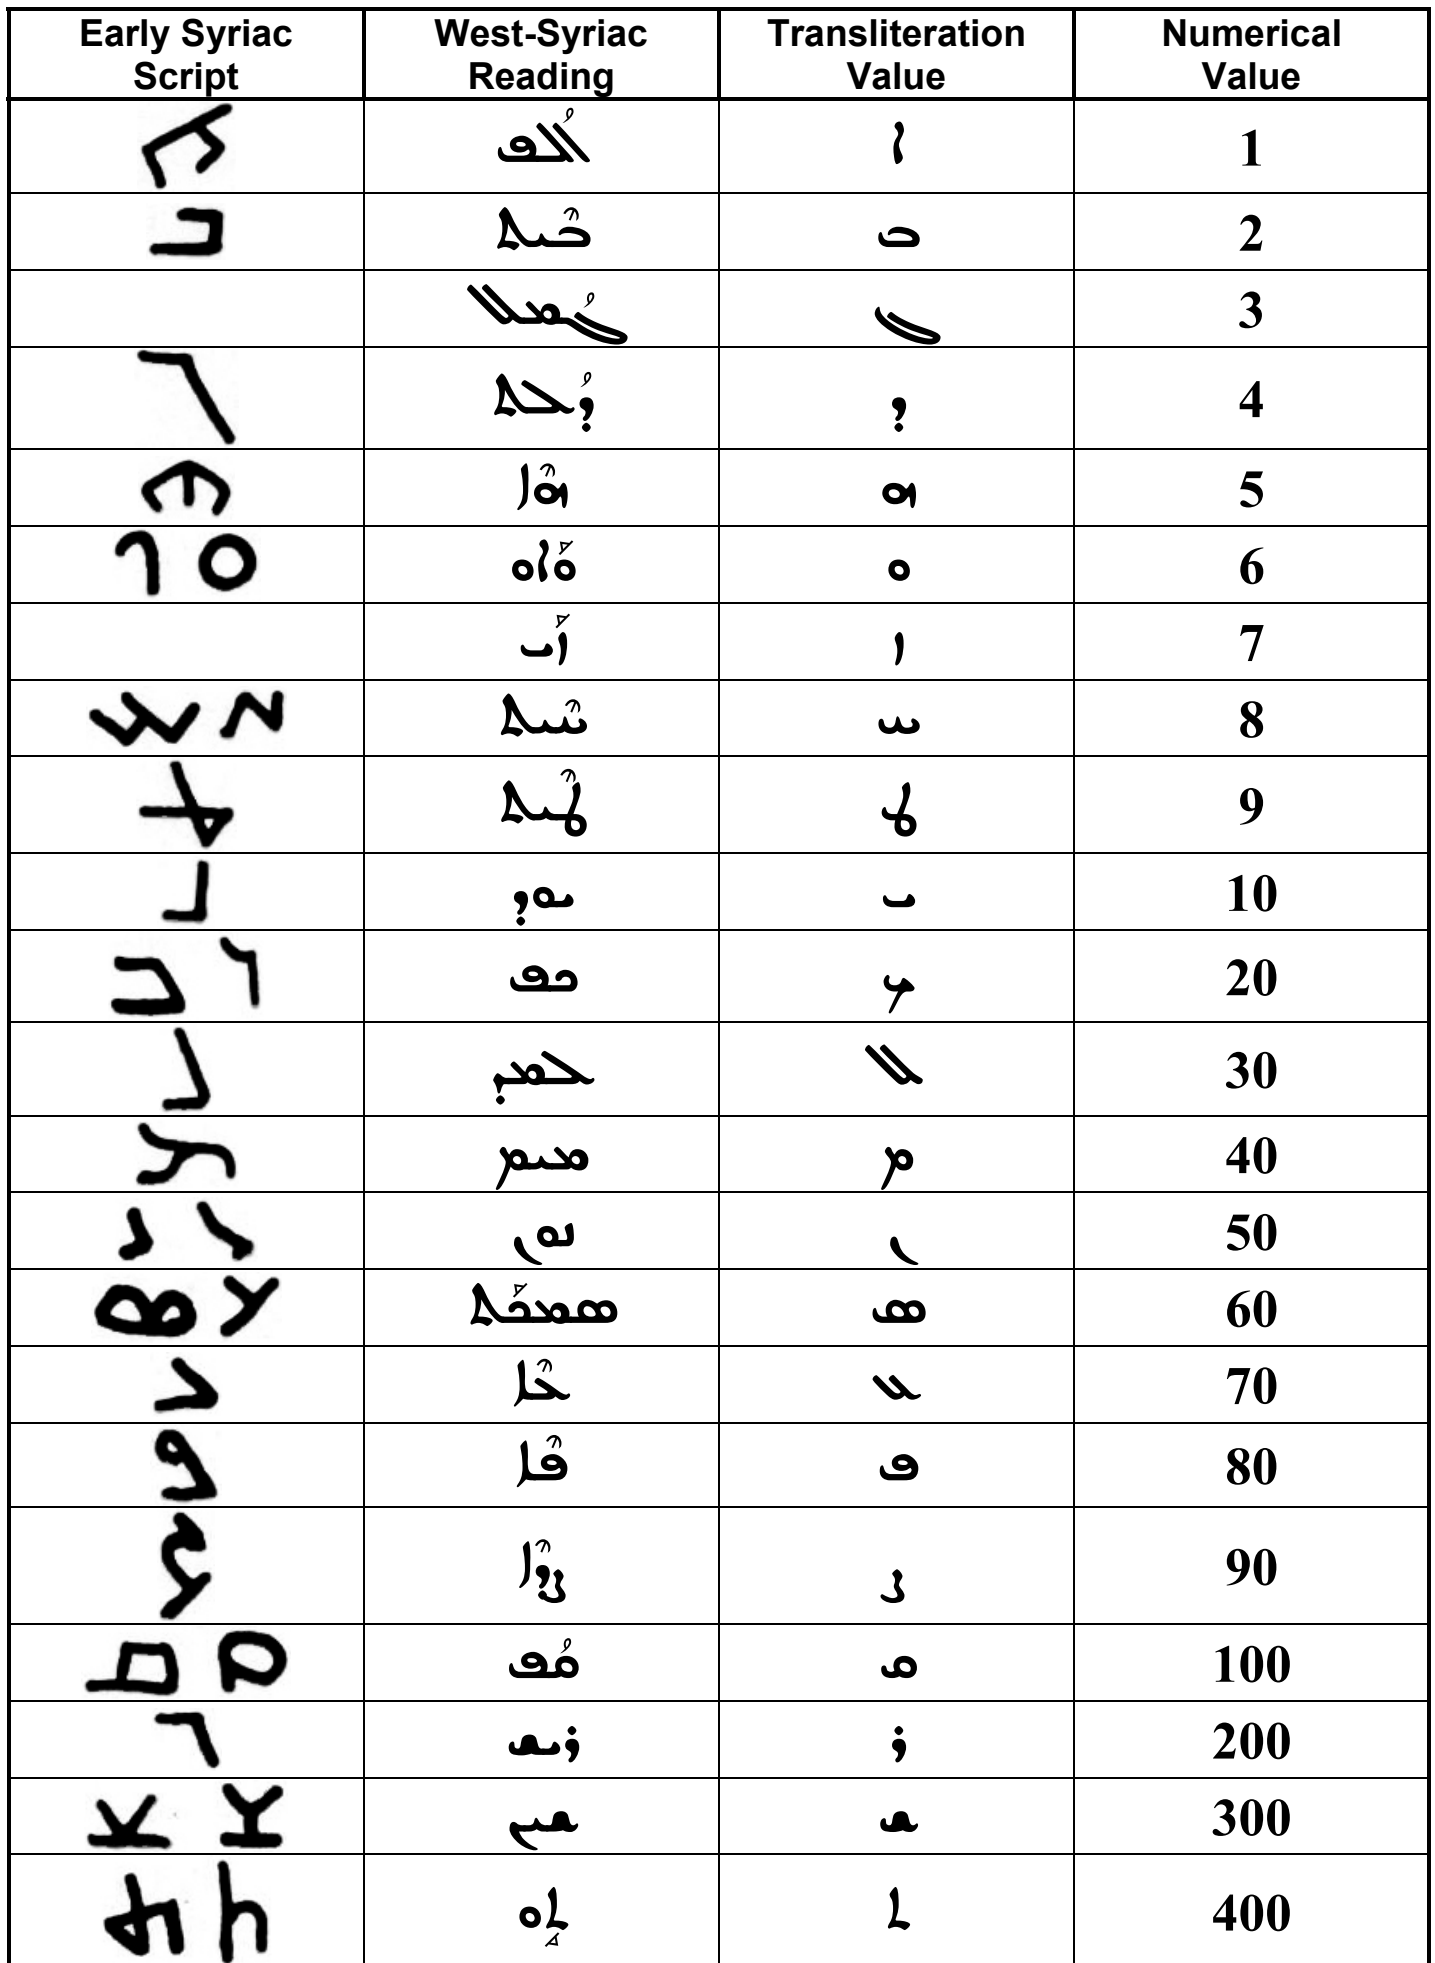 Early Syriac Script West-Syriac Reading Transliteration Value Numerical Value
ܐܰܠܦ ܐ 1
ܒܶܝܬ ܒ 2
ܓܰܡܠ ܓ 3
ܕܰܠܬ ܕ 4
ܗܶܐ ܗ 5
ܘܳܐܘ ܘ 6
ܙܳܝ ܙ 7
ܚܶܝܬ ܚ 8
ܛܶܝܬ ܛ 9
ܝܘܕ ܝ 10
ܟܦ ܟ 20
ܠܡܕ ܠ 30
ܡܝܡ ܡ 40
ܢܘܢ ܢ 50
ܣܡܟܳܬ ܣ 60
ܥܶܐ ܥ 70
ܦܶܐ ܦ 80
ܨܕܶܐ ܨ 90
ܩܰܦ ܩ 100
ܪܝܫ ܪ 200
ܫܝܢ ܫ 300
ܬܴܘ ܬ 400